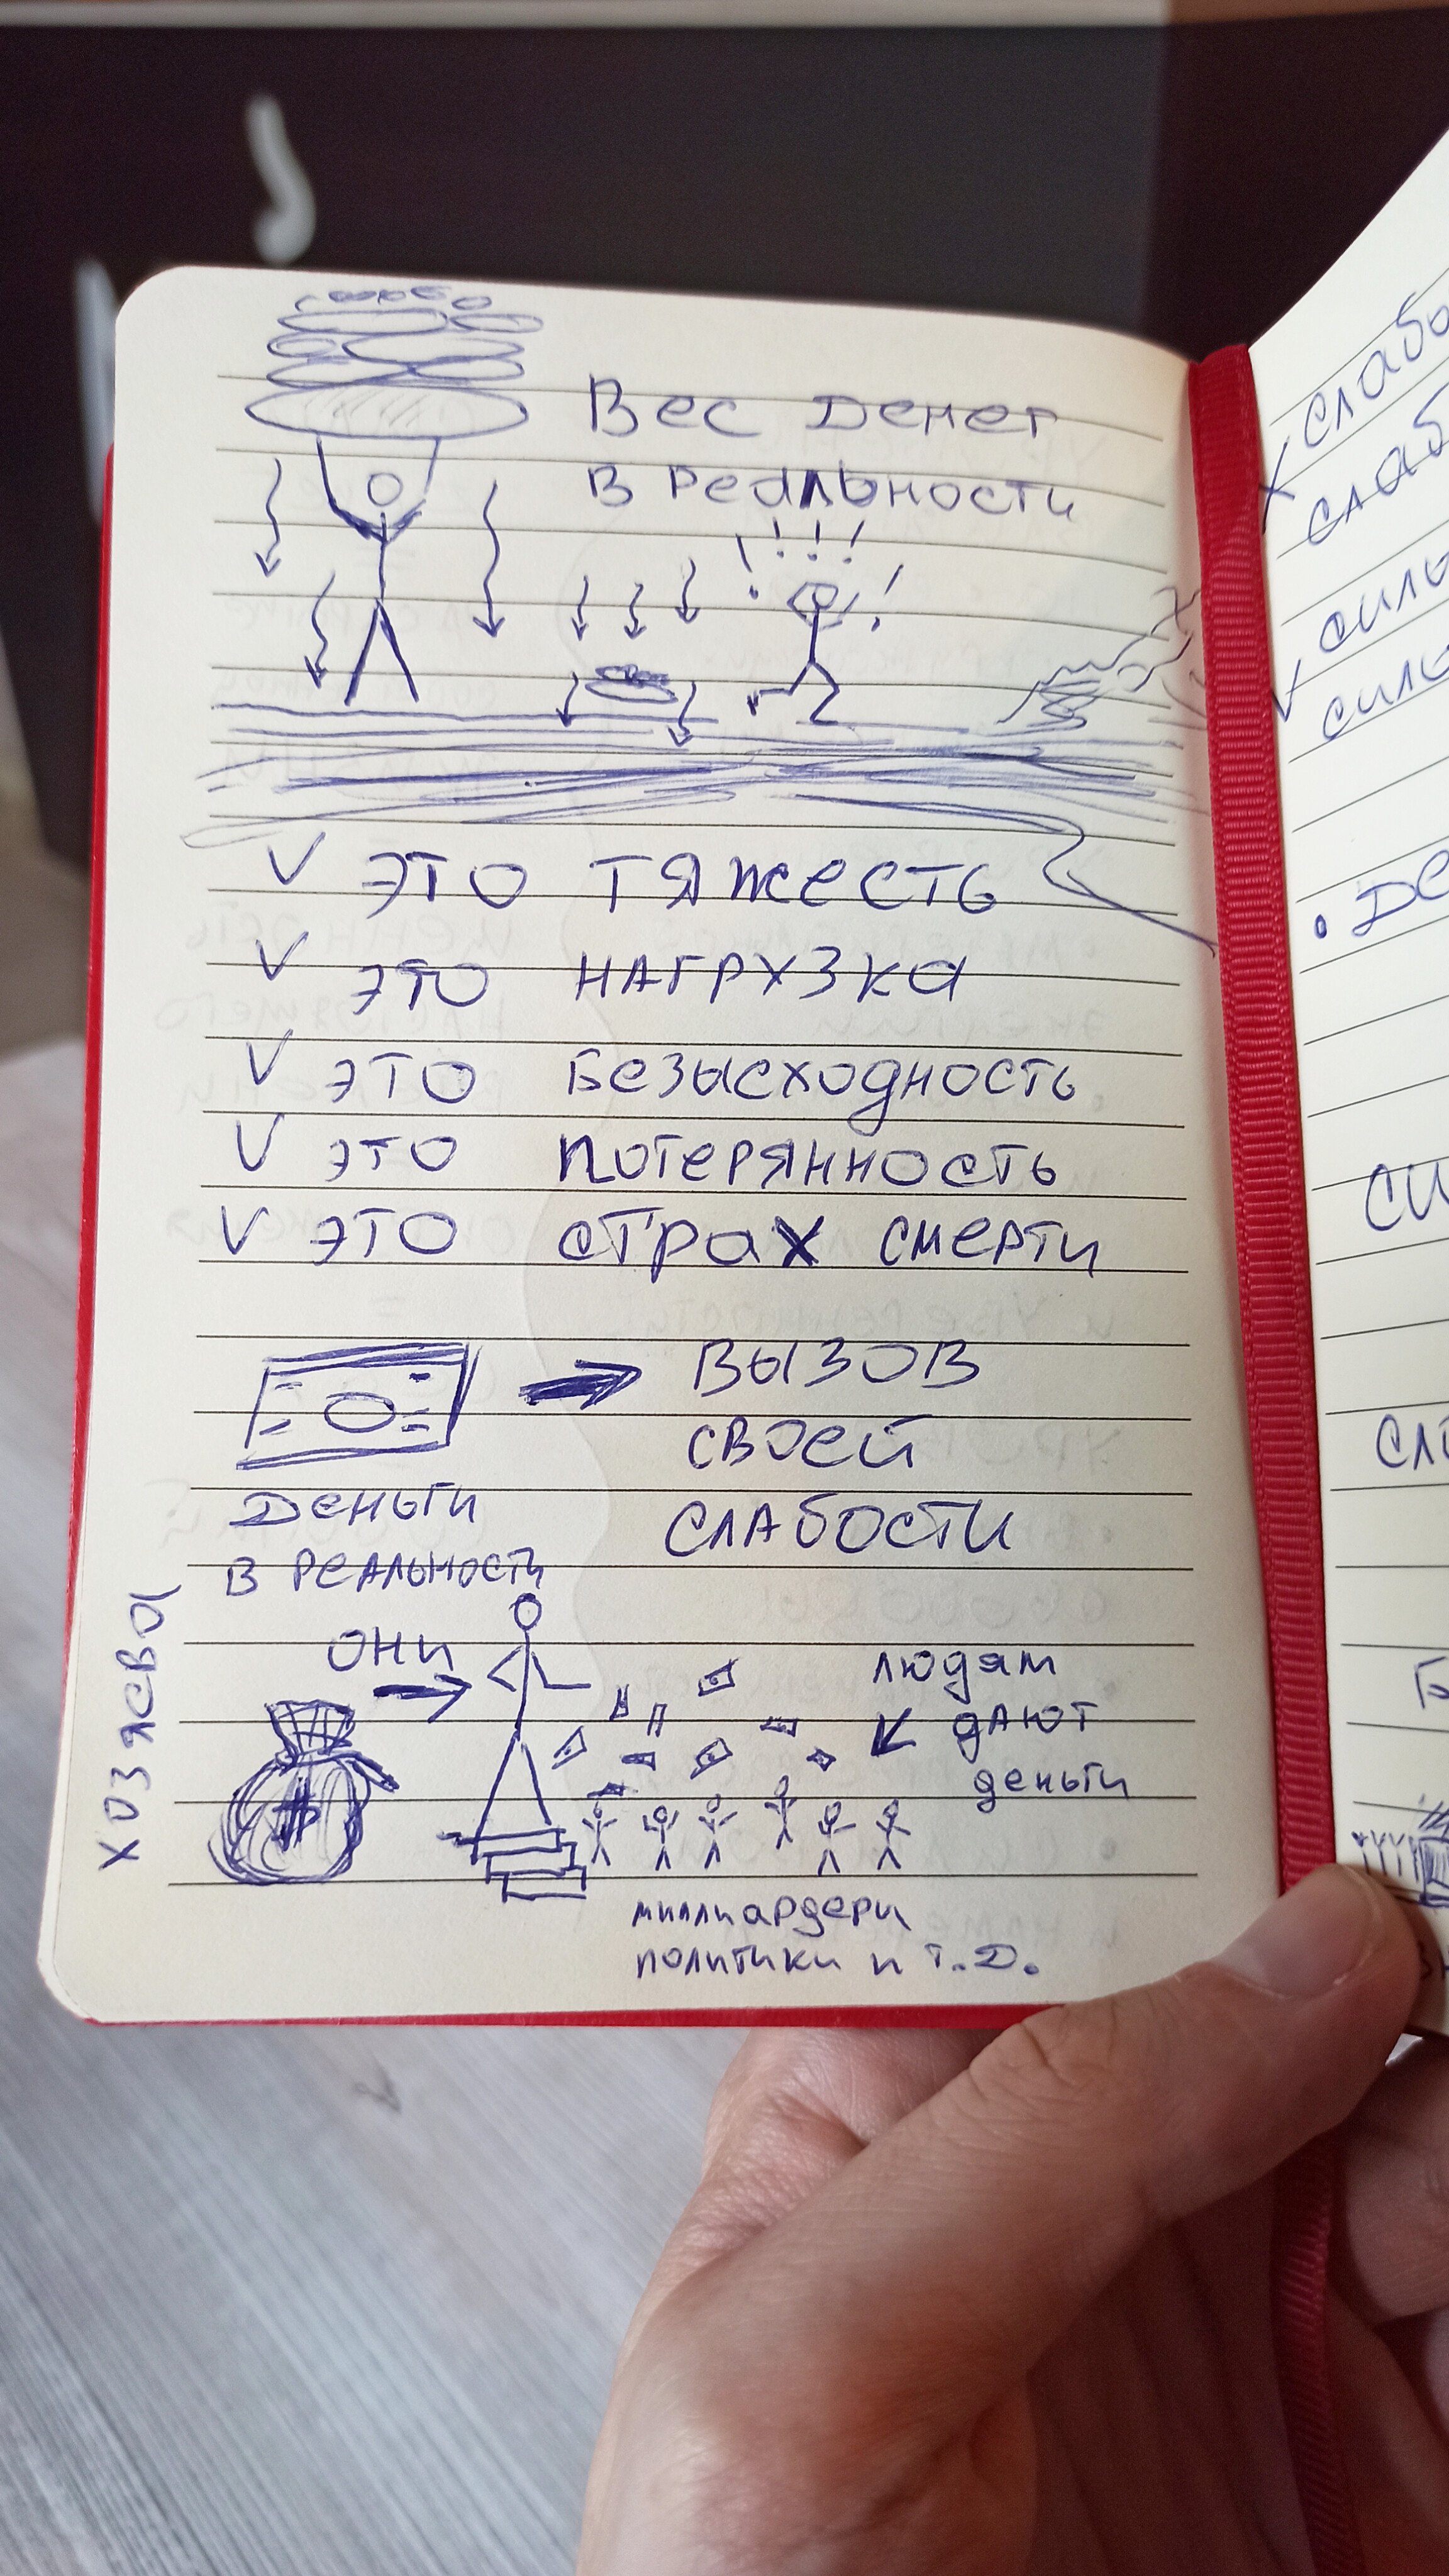 Вес денег
в реальности
! ! ! ! !
V это тяжесть
V это нагрузка
V это безысходность
V это потерянность
V это страх смерти
вызов
своей
слабости
Деньги
в реальности
хозяева
они
людям
дают
деньги
$
миллиардери
политики и т.д.
слаб
сильн
• Де
си
сл